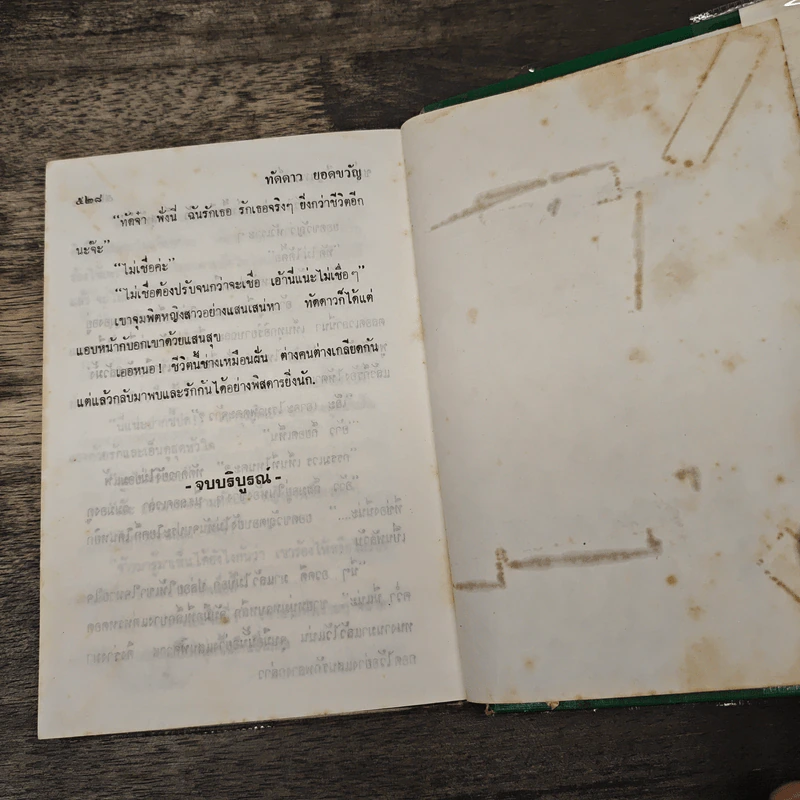 ทัดดาว ยอดขวัญ
๕๒๘
“ทัดจ๋า ฟังนี่ ฉันรักเธอ รักเธอจริงๆ ยิ่งกว่าชีวิตอีก
นะจ๊ะ”
“ไม่เชื่อค่ะ”
“ไม่เชื่อต้องปรับจนกว่าจะเชื่อ เอ้านี่แน่ะไม่เชื่อๆ”
เขาจุมพิตหญิงสาวอย่างแสนเสน่หา ทัดดาวก็ได้แต่
แอบหน้ากับอกเขาด้วยแสนสุข
เออหนอ! ชีวิตนี้ช่างเหมือนฝัน ต่างคนต่างเกลียดกัน
แต่แล้วกลับมาพบและรักกันได้อย่างพิสดารยิ่งนัก.
- จบบริบูรณ์ -